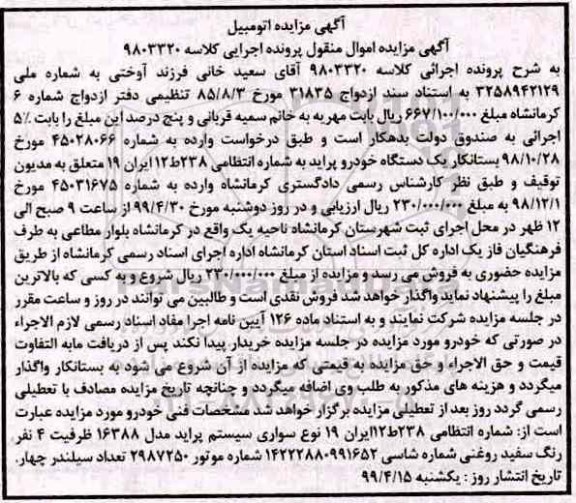 آگهی مزایده اتومبیل
آگهی مزایده اموال منقول پرونده اجرایی کلاسه ۹۸۰۳۳۲۰
به شرح پرونده اجرائی کلاسه ۹۸۰۳۳۲۰ آقای سعید خانی فرزند آوختی به شماره ملی
۳۲۵۸۹۴۲۱۲۹ به استناد سند ازدواج ۳۱۸۳۵ مورخ ۸۵/۸/۳ تنظیمی دفتر ازدواج شماره ۶
کرمانشاه مبلغ ۶۶۷/۱۰۰/۰۰۰ ریال بابت مهریه به خانم سمیه قربانی و پنج درصد این مبلغ را بابت ۵٪
اجرائی به صندوق دولت بدهکار است و طبق درخواست وارده به شماره ۴۵۰۲۸۰۶۶ مورخ
۹۸/۱۰/۲۸ بستانکار یک دستگاه خودرو پراید به شماره انتظامی ۲۳۸ط۱۲ ایران ۱۹ متعلق به مدیون
توقیف و طبق نظر کارشناس رسمی دادگستری کرمانشاه وارده به شماره ۴۵۰۳۱۶۷۵ مورخ
۹۸/۱۲/۱ به مبلغ ۲۳۰/۰۰۰/۰۰۰ ریال ارزیابی و در روز دوشنبه مورخ ۹۹/۴/۳۰ از ساعت ۹ صبح الی
۱۲ ظهر در محل اجرای ثبت شهرستان کرمانشاه ناحیه یک واقع در کرمانشاه بلوار مطاعی به طرف
فرهنگیان فاز یک اداره کل ثبت اسناد استان کرمانشاه اداره اجرای اسناد رسمی کرمانشاه از طریق
مزایده حضوری به فروش می رسد و مزایده از مبلغ ۲۳۰/۰۰۰/۰۰۰ ریال شروع و به کسی که بالاترین
مبلغ را پیشنهاد نماید واگذار خواهد شد فروش نقدی است و طالبین می توانند در روز و ساعت مقرر
در جلسه مزایده شرکت نمایند و به استناد ماده ۱۲۶ آیین نامه اجرا مفاد اسناد رسمی لازم الاجراء
در صورتی که خودرو مورد مزایده در جلسه مزایده خریدار پیدا نکند پس از دریافت مابه التفاوت
قیمت و حق الاجراء و حق مزایده به قیمتی که مزایده از آن شروع می شود به بستانکار واگذار
میگردد و هزینه های مذکور به طلب وی اضافه میگردد و چنانچه تاریخ مزایده مصادف با تعطیلی
رسمی گردد روز بعد از تعطیلی مزایده برگزار خواهد شد مشخصات فنی خودرو مورد مزایده عبارت
است از: شماره انتظامی ۲۳۸ط۱۲ایران ۱۹ نوع سواری سیستم پراید مدل ۱۶۳۸۸ ظرفیت ۴ نفر
رنگ سفید روغنی شماره شاسی ۱۴۲۲۲۸۸۰۹۹۱۶۵۲ شماره موتور ۲۹۸۷۲۵۰ تعداد سیلندر چهار.
تاریخ انتشار روز : یکشنبه ۹۹/۴/۱۵